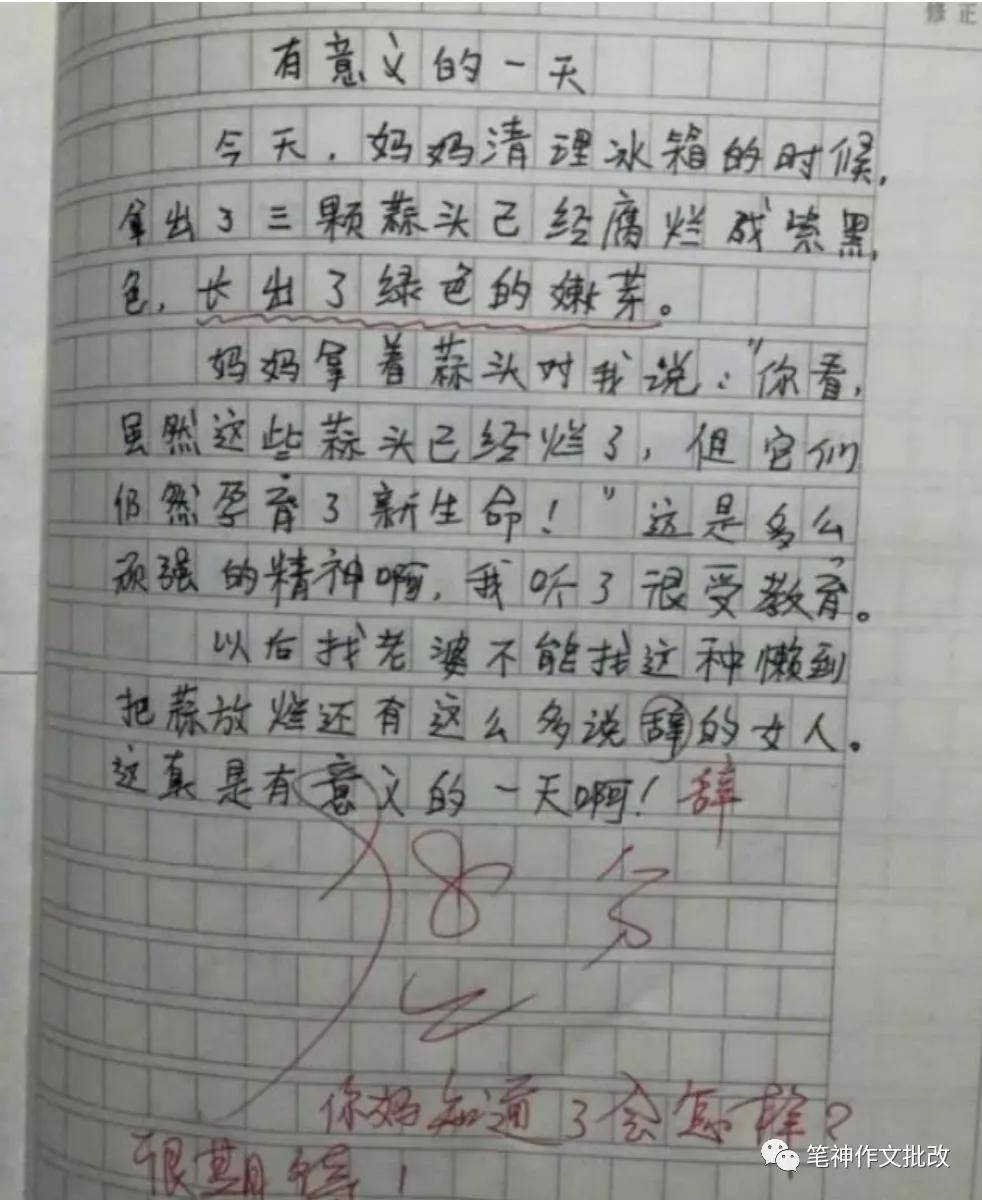 修正
有意义的一天
今天，妈妈清理冰箱的时候，
拿出了三颗蒜头已经腐烂成紫黑
色，长出了绿色的嫩芽。
妈妈拿着蒜头对我说：“你看，
虽然这些蒜头已经烂了，但它们
仍然孕育了新生命！”这是多么
顽强的精神啊，我听了很受教育。
以后找老婆不能找这种懒到
把蒜放烂还有这么多说辞的女人。
这真是有意义的一天啊！辞
28分
你妈知道了会怎样？
很期待！
笔神作文批改